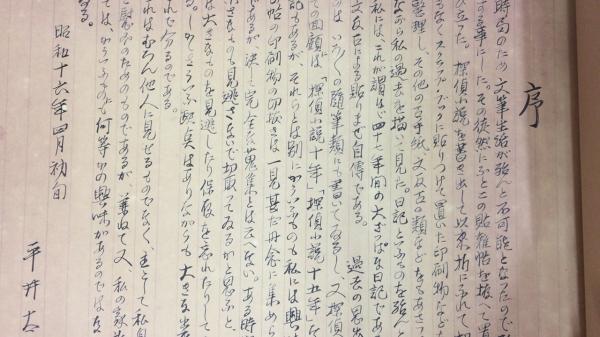 序
時局のため文筆生活が殆んど不可能となったので
する事にした。その徒然にふとこの貼雑帖を拵て置
ひ立った。探偵小説を書き出して以来折にふれて切
なくスクラップ・ブックに貼りつけて置いた印刷物など
整理し、その他の古手紙、文反古の類などをもあさつ
ながら私の過去を描いて見た。日記といふものを殆んど
私には、これが謂はば四十七年間の大ざっぱな日記であ
文反古による貼りまぜ自傳である。 過去の思出
のは、いろ〱の随筆類にも書いてゐるし、又探偵
ての回顧は、「探偵小説十年」「探偵小説十五年」な
記もあるが、それらとは別にかういふものも私には興味
帖の印刷物の切抜きは一見甚だ丹念に集めら
であるが、決して完全な蒐集とは云へない。ある時
小さなものも見逃さないで切取つてゐるかと思ふと、
は大きなものを見逃したり保存を忘れたりして
る。しかしさういふ欠点はありながらも大きな
れで分るのである。
これはむろん他人に見せるものでなく、主として私自
と慰みのためのものであるが、蓋し又、私の家
つてはかういふものも何等かの興味があるのではな
する。
昭和十六年四月初旬
平井太